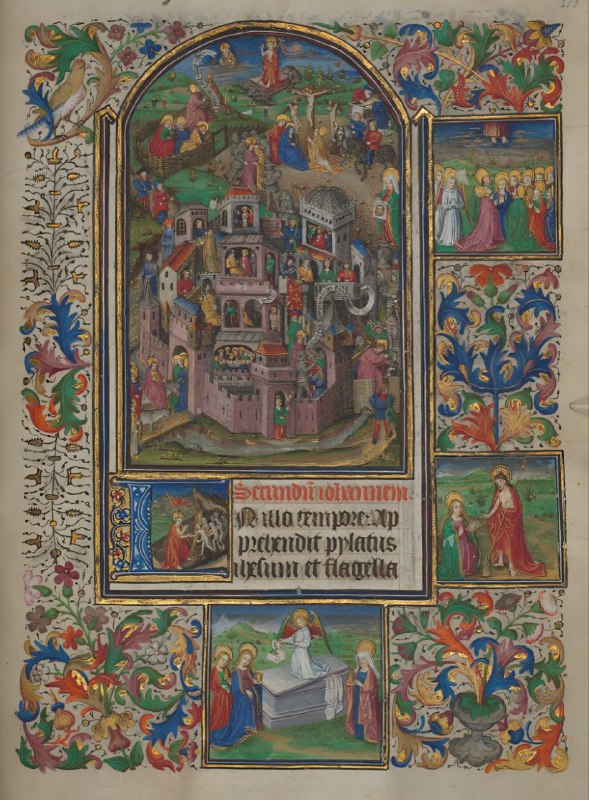 Secundū iohannem.
IN illo tempore: Ap
prehendit pylatus
ihesum et flagella